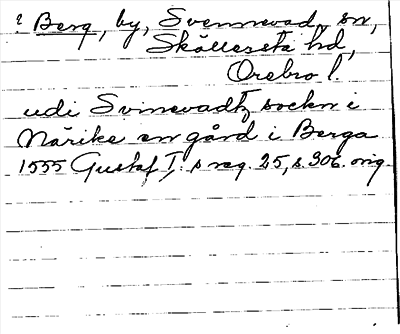 ? Berg, by, Svennevad sn,
Sköllersta hd,
Örebro l.
udi Svinevadtz sockn i
Närike en gård i Berga
1555 Gustaf I:s reg. 25, s. 306. orig.